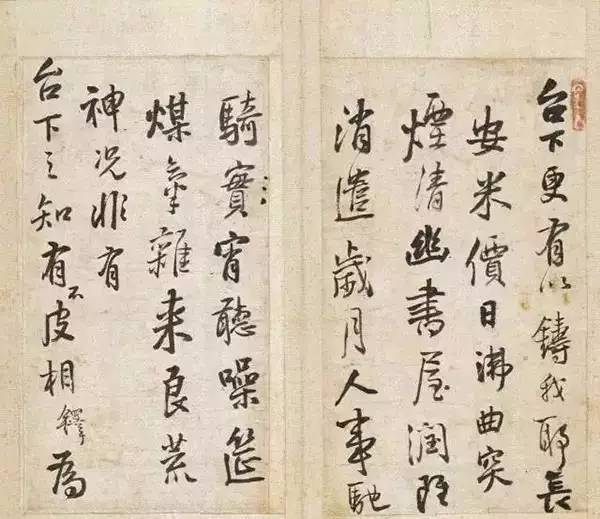 台下更有以鑄我耶長
安米價日沸曲突
煙清幽書屋潤
消遣歲月人事馳
騎實宵聽噪筵
煤氣雜来良荒
神况非有
台下之知有不皮相鐸為